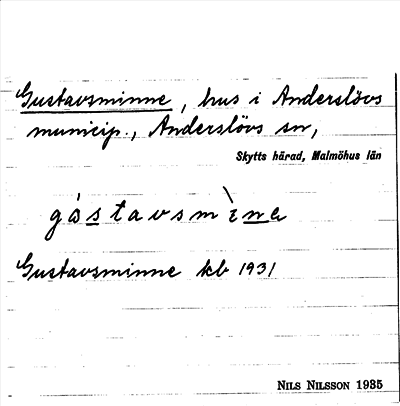 Gustavsminne, hus i Anderslövs
municip., Anderslövs sn,
Skytts härad, Malmöhus län
Gustavsminne kb 1931
NILS NILSSON 1935